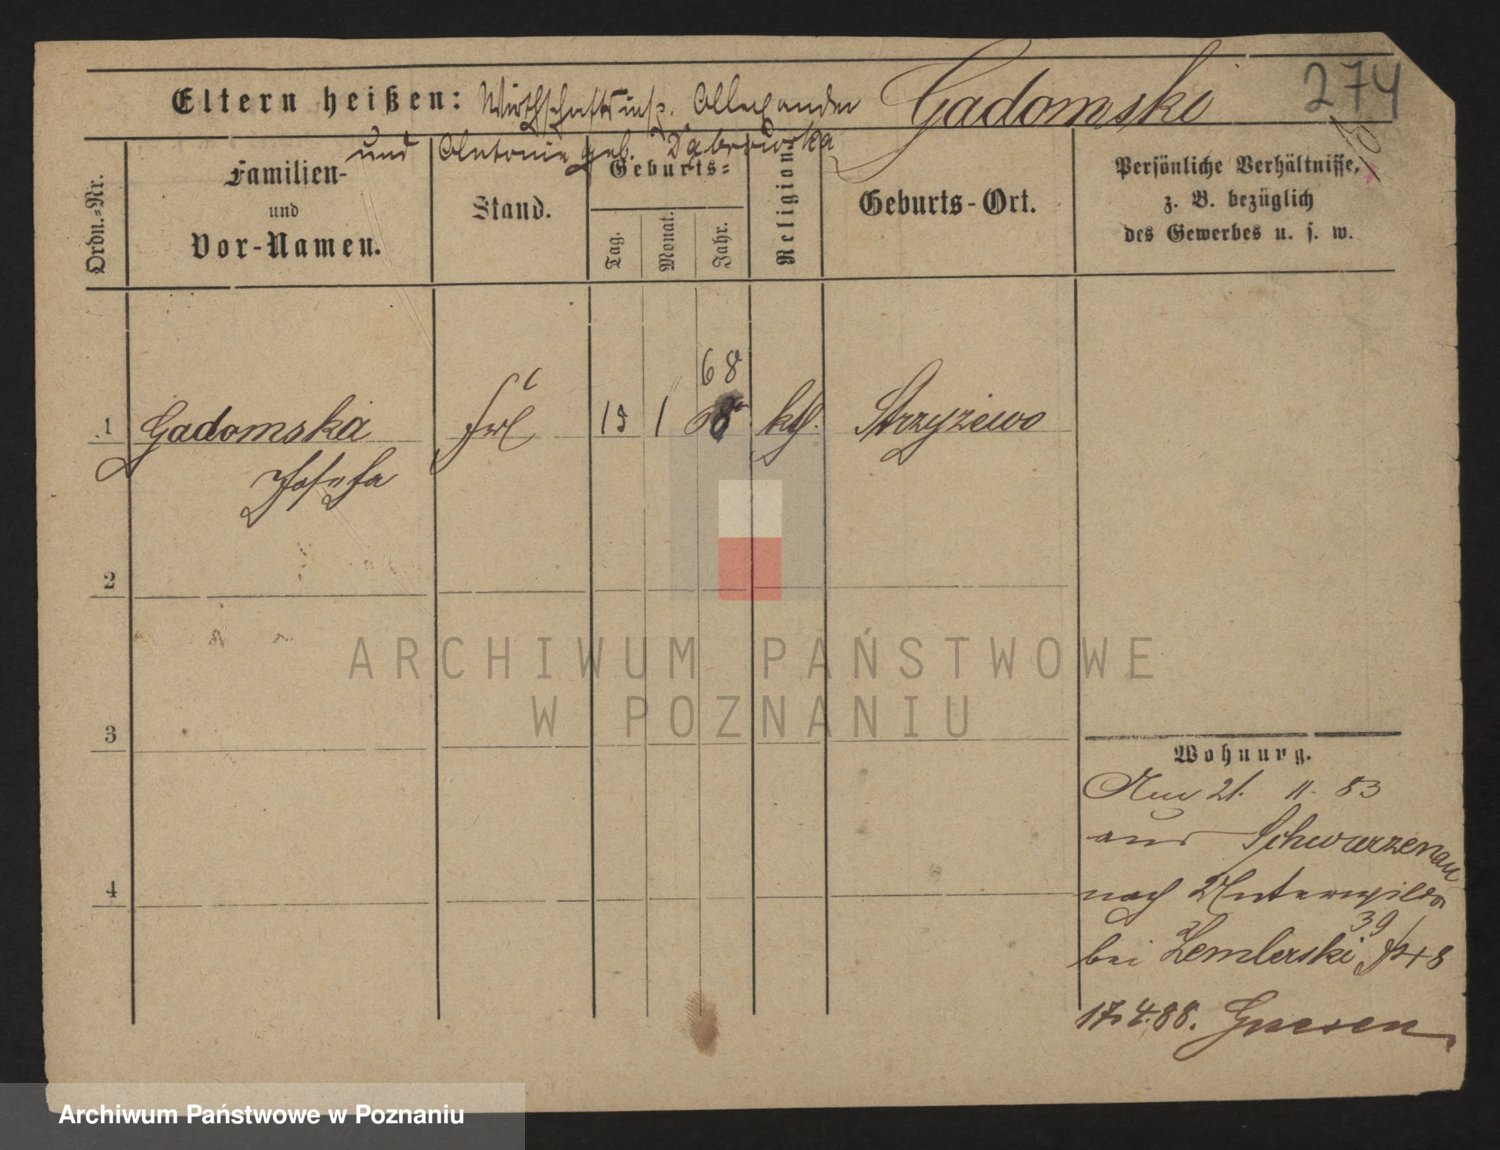 274
Eltern heißen: Wirthschaftsinsp. Allexander Gadomski
und Antonie geb. Dąbrowska
Ordn.=Nr.
Familien-
und
Vor-Namen.
Stand.
Geburts=
Tag.
Monat.
Jahr.
Religion.
Geburts-Ort.
Persönliche Verhältnisse,
z. B. bezüglich
des Gewerbes u. s. w.
68
1 Gadomska Frl 15 1 68 kth. Strzyżewo
Josefa
2
3
4
Wohnung.
Am 21. 11. 83
aus Schwarzenau
nach Unterwilda
39
bei Zemlerski
17.4.88. Gnesen
ARCHIWUM PAŃSTWOWE
W POZNANIU
Archiwum Państwowe w Poznaniu